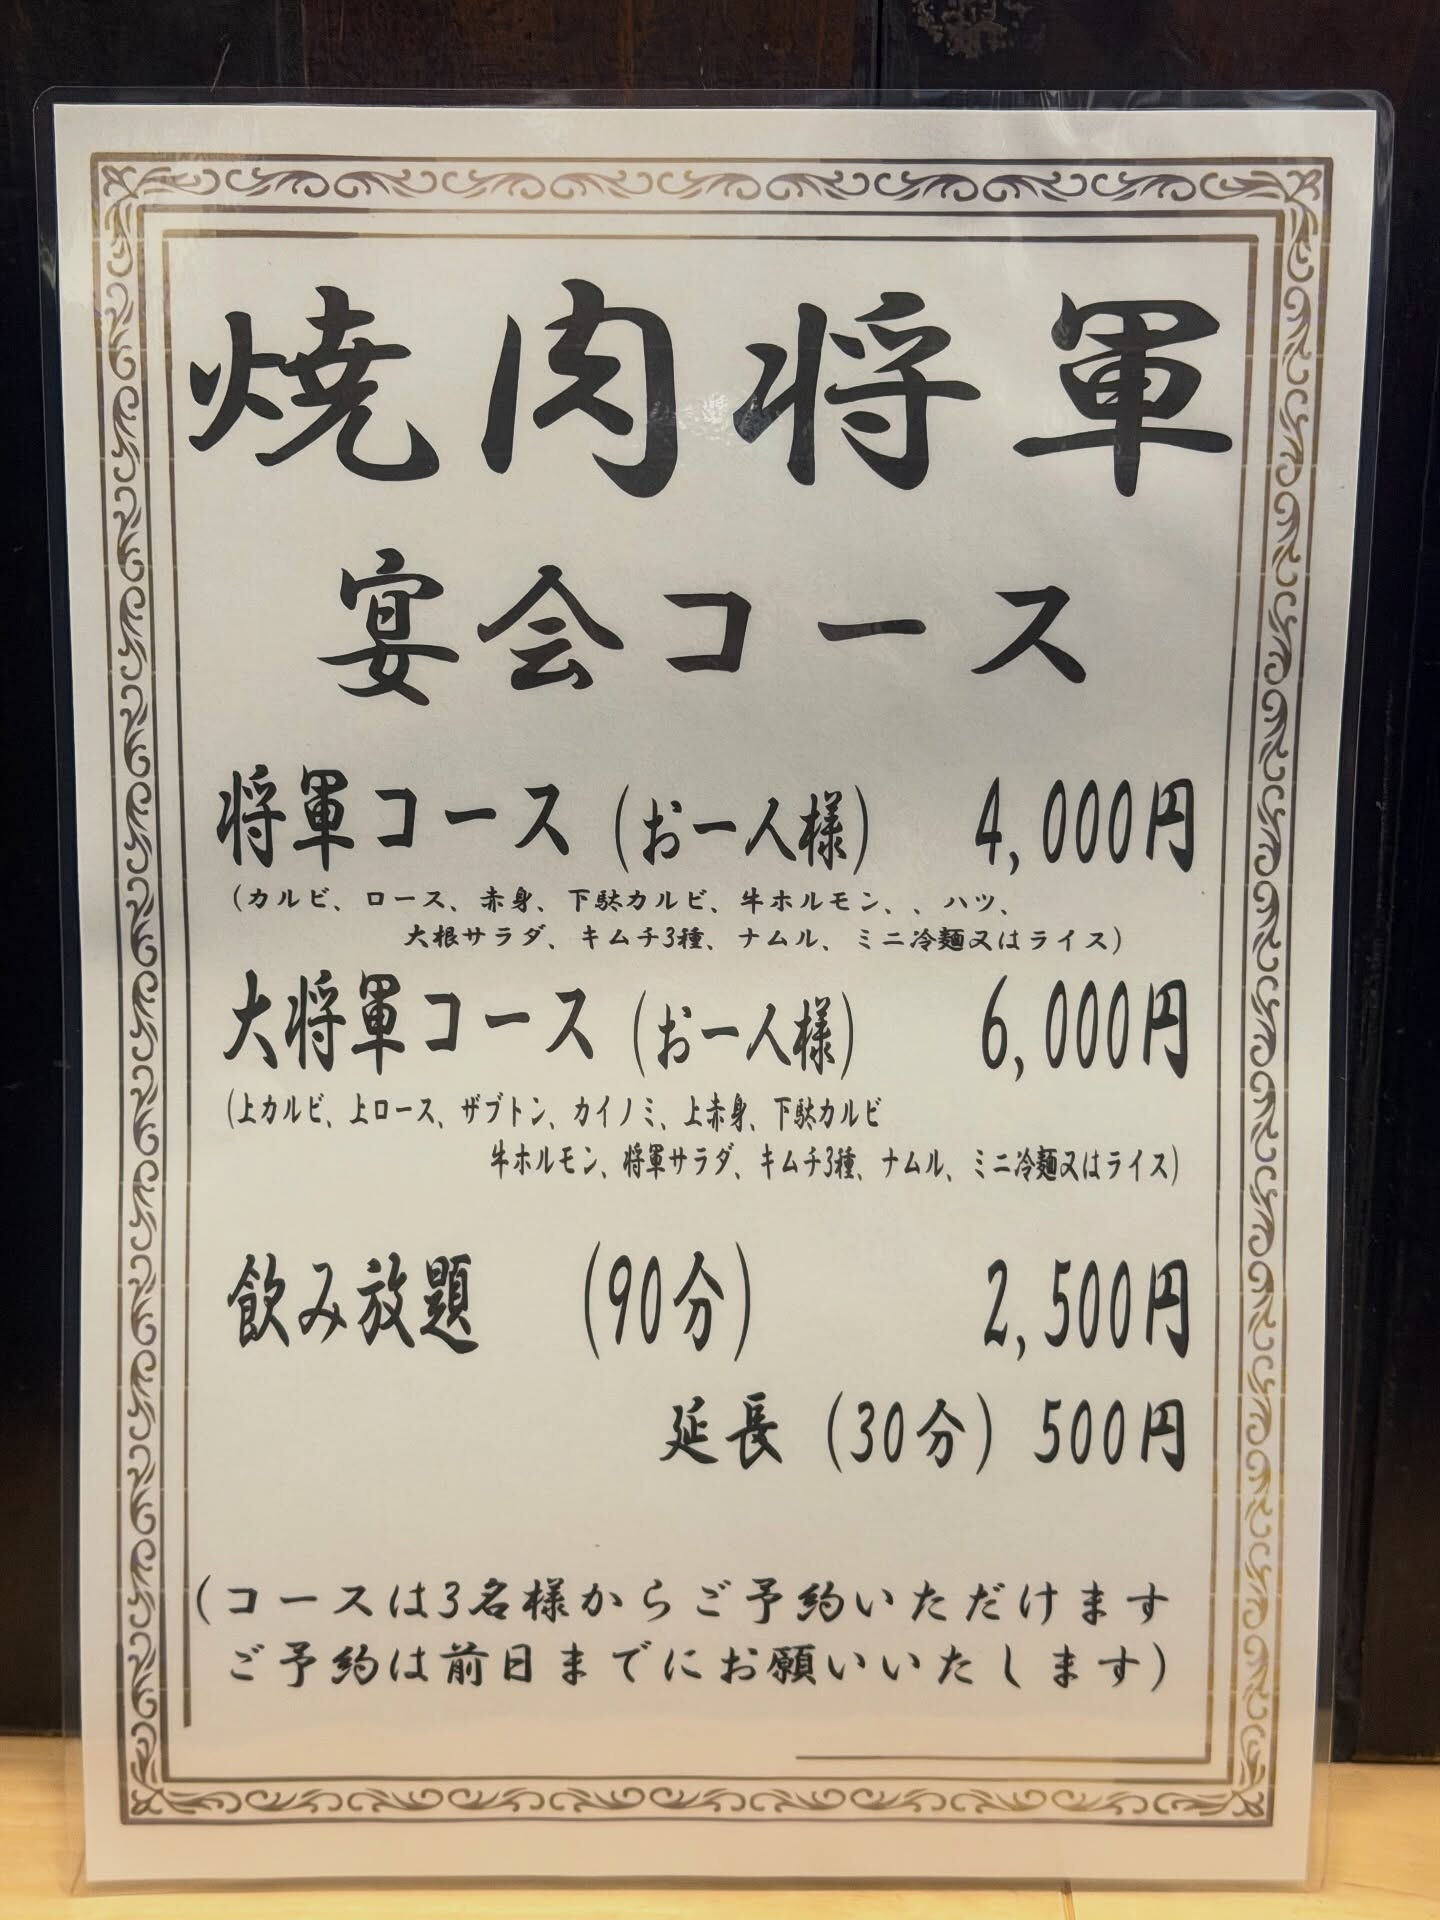 焼肉将軍
宴会コース
将軍コース(お一人様) 4,000円
(カルビ、ロース、赤身、下駄カルビ、牛ホルモン、、ハツ、
大根サラダ、キムチ3種、ナムル、ミニ冷麺又はライス)
大将軍コース(お一人様) 6,000円
(上カルビ、上ロース、ザブトン、カイノミ、上赤身、下駄カルビ
牛ホルモン、将軍サラダ、キムチ3種、ナムル、ミニ冷麺又はライス)
飲み放題 (90分) 2,500円
延長(30分)500円
(コースは3名様からご予約いただけます
ご予約は前日までにお願いいたします)